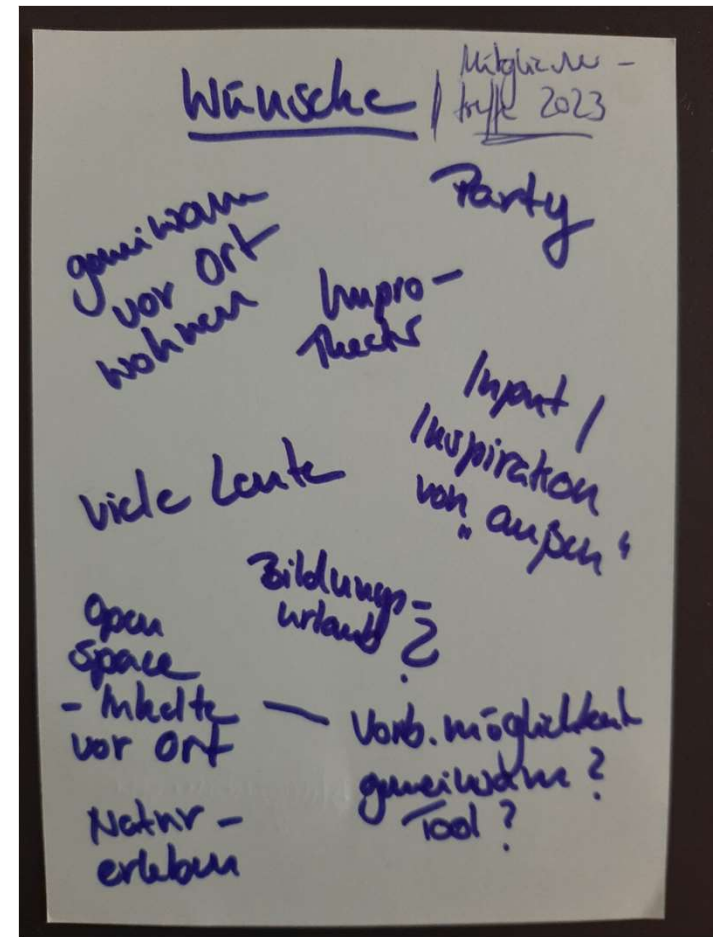 Wünsche / Mitglieder-
treffen 2023
Party
gemeinsam
vor Ort
wohnen
Impro-
Theater
Input /
Inspiration
von „außen“
viele Leute
Bildungs-
urlaub?
Open
Space
- Inhalte
vor Ort
Vorb. möglichkeit
gemeinsame?
Tool?
Natur-
erleben